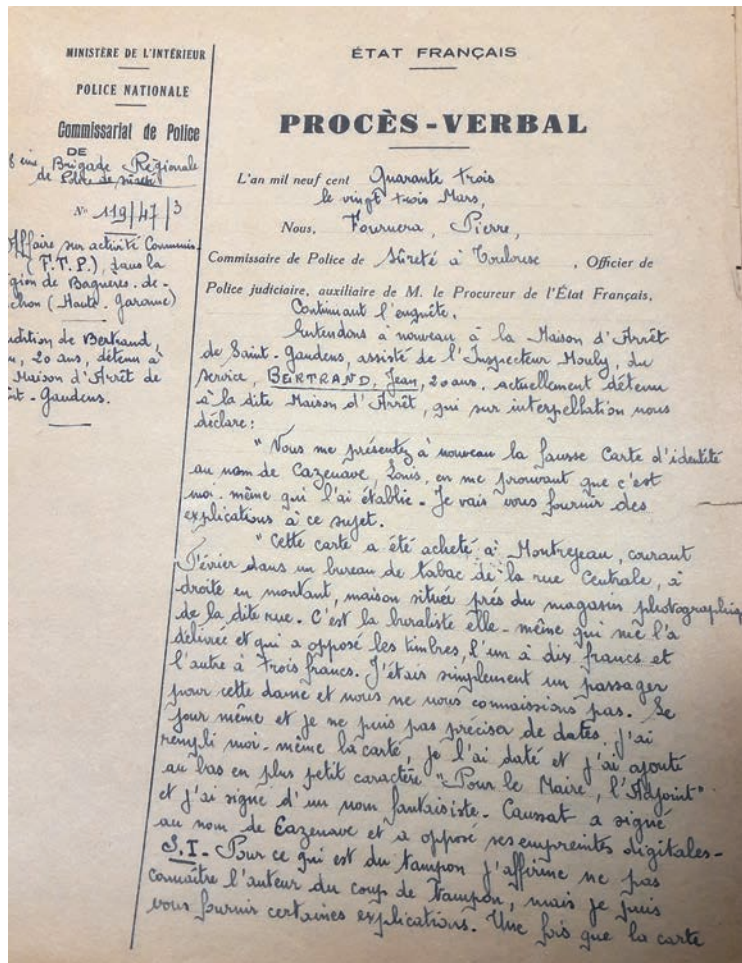 MINISTÈRE DE L'INTÉRIEUR
POLICE NATIONALE
Commissariat de Police
DE
eme Brigade Régionale
de Police de Sûreté
N° 119/47/3
Affaire sur activité Communis-
(F.T.P.), dans la
gion de Bagneres-de-
chon (Haute-Garonne)
udition de Bertrand,
n, 20 ans, détenu à
Maison d'Arrêt de
nt-Gaudens.
ÉTAT FRANÇAIS
PROCÈS-VERBAL
L'an mil neuf cent Quarante trois
le vingt trois Mars,
Nous, Fournera, Pierre,
Commissaire de Police de Sûreté à Toulouse, Officier de
Police judiciaire, auxiliaire de M. le Procureur de l'État Français,
Continuant l'enquête.
Entendons à nouveau à la Maison d'Arrêt
de Saint-Gaudens, assisté de l'Inspecteur Mouly, du
service, BERTRAND, Jean, 20 ans, actuellement détenu
à la dite Maison d'Arrêt, qui sur interpellation nous
déclare:
"Vous me présentez à nouveau la fausse Carte d'identité
au nom de Cazenave, Louis, en me prouvant que c'est
moi-même qui l'ai établie. Je vais vous fournir des
explications à ce sujet.
"Cette carte a été acheté à Montrejeau, courant
Février dans un bureau de tabac de la rue Centrale, à
droite en montant, maison située prés du magasin photographiq
de la dite rue. C'est la buraliste elle-même qui me l'a
délivrée et qui a opposé les timbres, l'un à dix francs et
l'autre à Trois francs. J'étais simplement un passager
pour cette dame et nous ne nous connaissions pas. Le
jour même et je ne puis pas préciser de dates, j'ai
rempli moi-même la carte, je l'ai daté et j'ai ajouté
au bas en plus petit caractère "Pour le Maire, l'Adjoint"
et j'ai signé d'un nom fantaisiste. Caussat a signé
au nom de Cazenave et a opposé ses empreintes digitales-
S.I- Pour ce qui est du tampon j'affirme ne pas
connaître l'auteur du coup de tampon, mais je puis
vous fournir certaines explications. Une fois que la carte